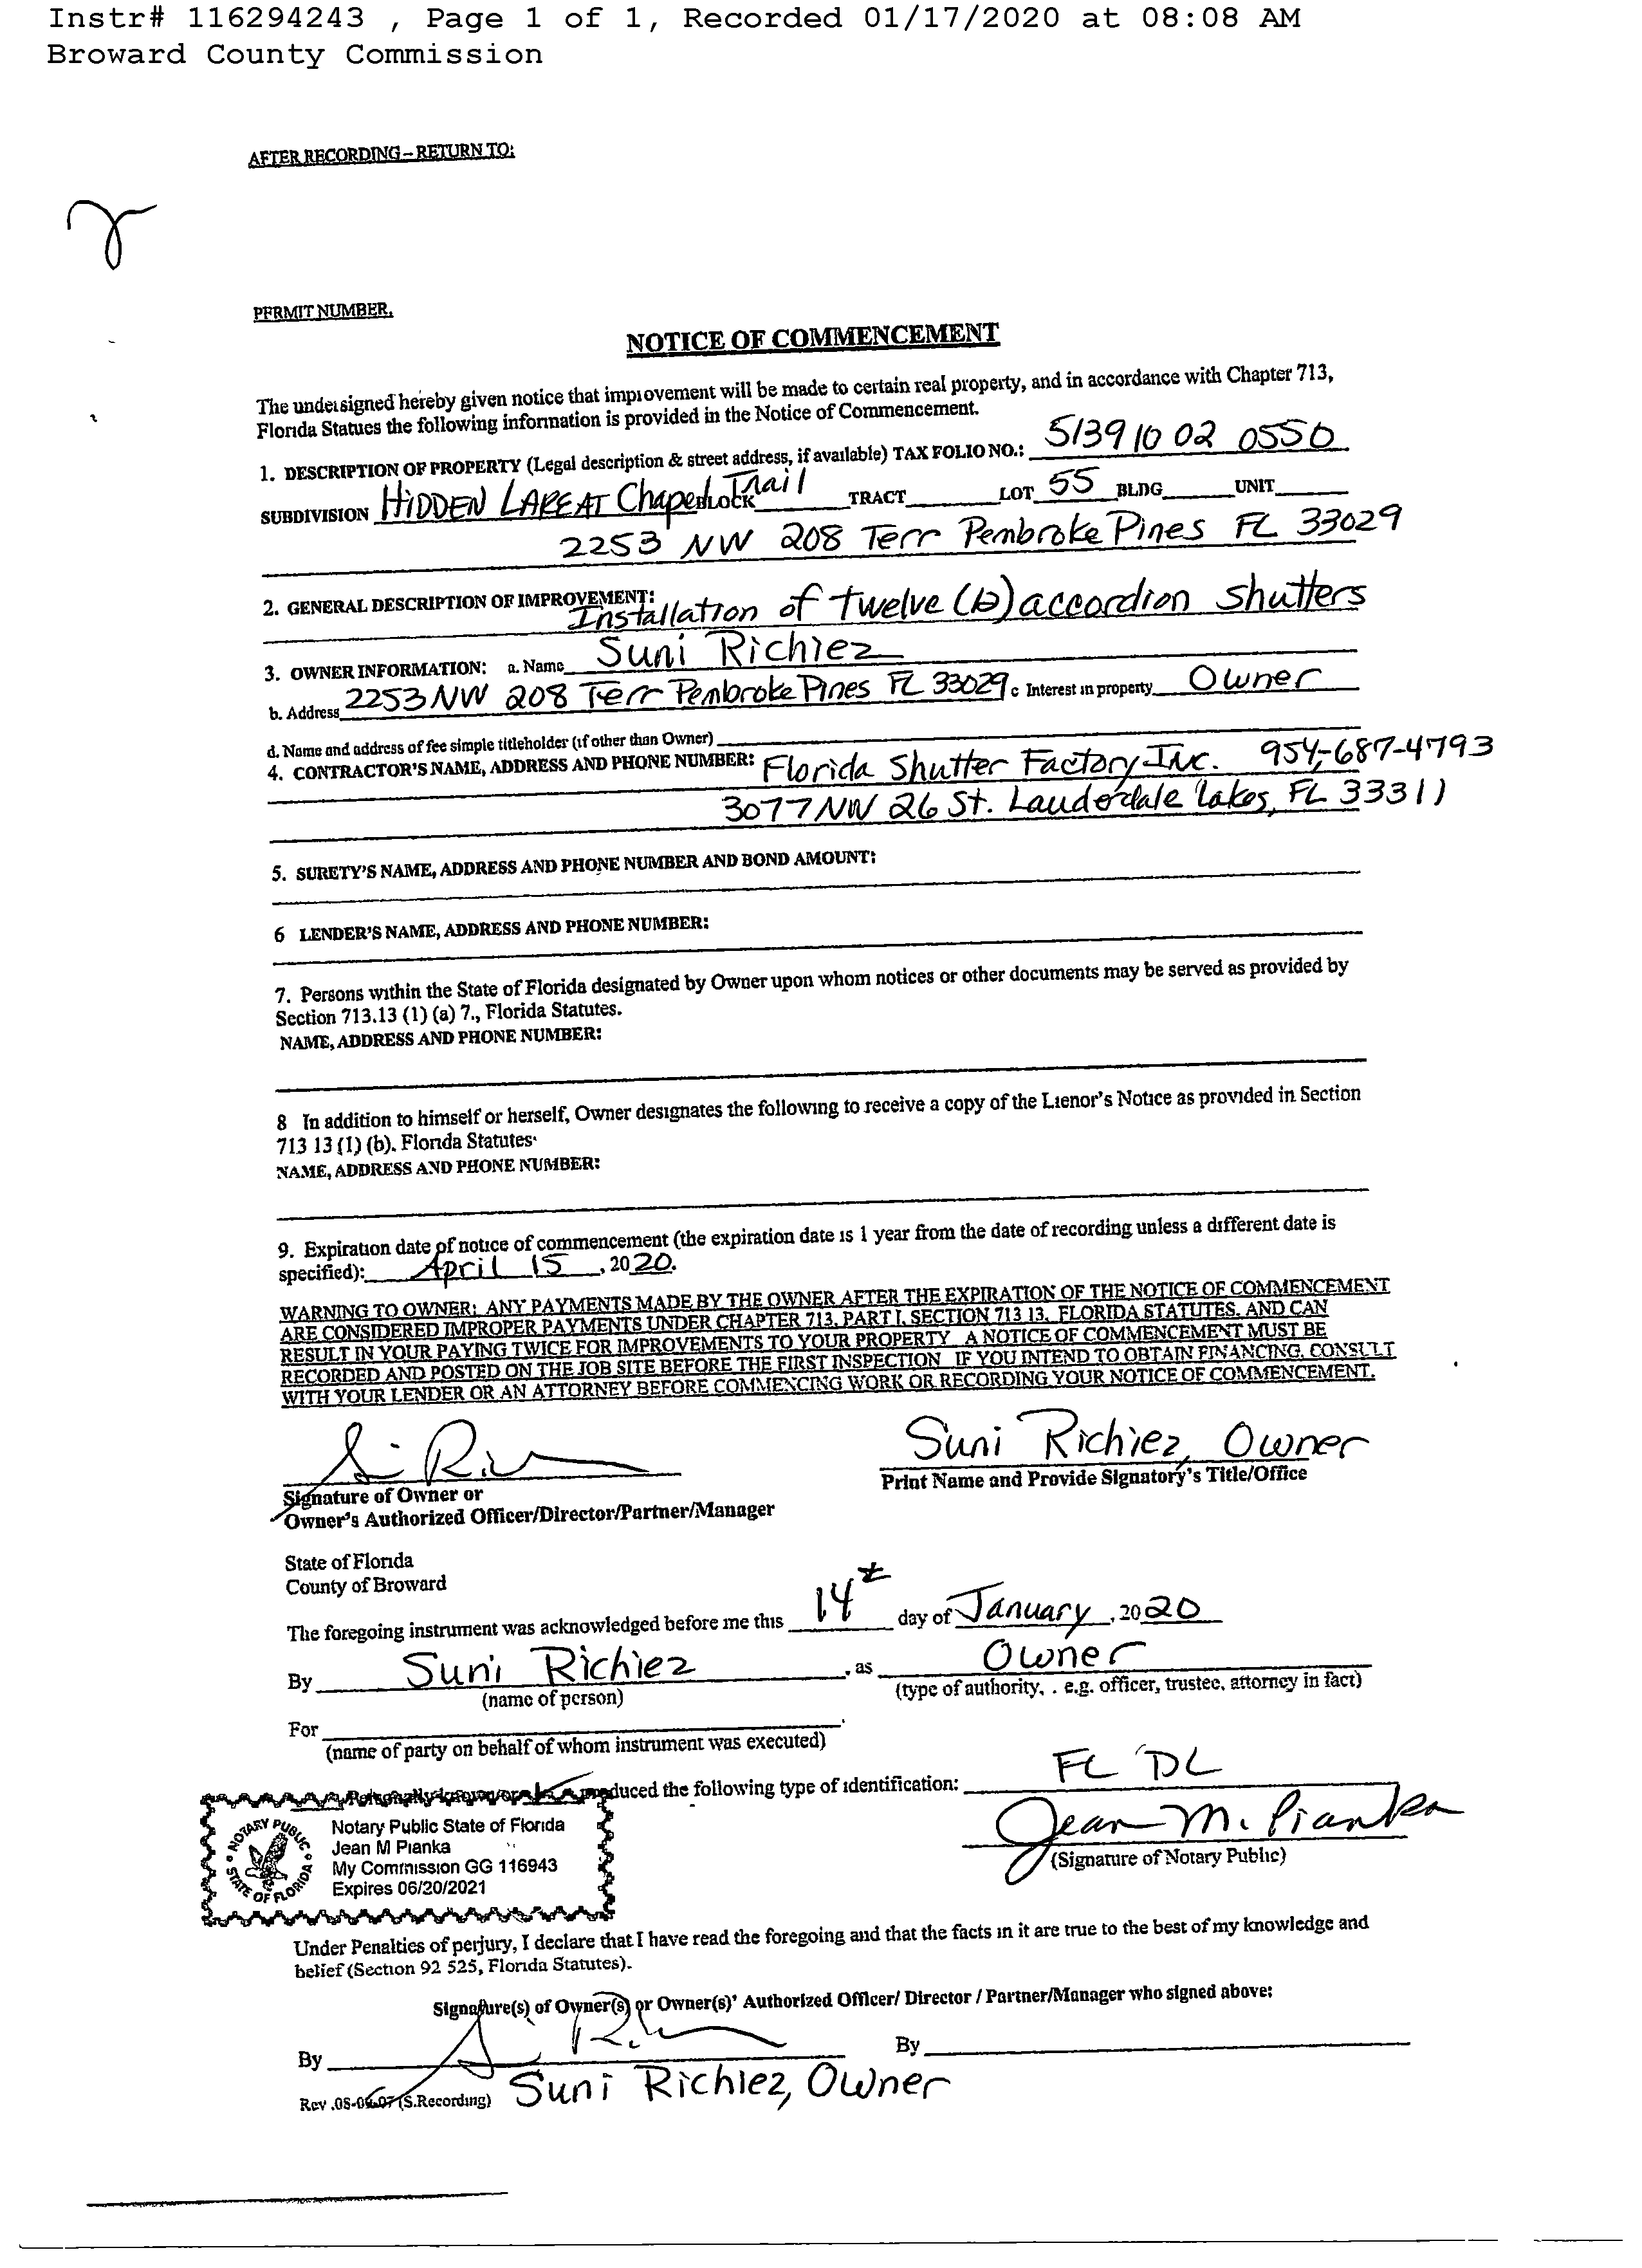 Instr# 116294243 , Page 1 of 1, Recorded 01/17/2020 at 08:08 AM
Broward County Commission
AFTER RECORDING – RETURN TO:
PERMIT NUMBER.
NOTICE OF COMMENCEMENT
The undersigned hereby given notice that improvement will be made to certain real property, and in accordance with Chapter 713,
Florida Statues the following information is provided in the Notice of Commencement.
1. DESCRIPTION OF PROPERTY (Legal description & street address, if available) TAX FOLIO NO.: 5139 10 02 0550
SUBDIVISION HIDDEN LAKE AT Chapel Trail BLOCK TRACT LOT 55 BLDG UNIT
2253 NW 208 Terr Pembroke Pines FL 33029
2. GENERAL DESCRIPTION OF IMPROVEMENT:
Installation of twelve (12) accordion shutters
3. OWNER INFORMATION: a. Name Suni Richiez
b. Address 2253 NW 208 Terr Pembroke Pines FL 33029 c Interest in property Owner
d. Name and address of fee simple titleholder (if other than Owner)
4. CONTRACTOR'S NAME, ADDRESS AND PHONE NUMBER: Florida Shutter Factory Inc. 954-687-4793
3077 NW 26 St. Lauderdale Lakes, FL 33311
5. SURETY'S NAME, ADDRESS AND PHONE NUMBER AND BOND AMOUNT:
6 LENDER'S NAME, ADDRESS AND PHONE NUMBER:
7. Persons within the State of Florida designated by Owner upon whom notices or other documents may be served as provided by
Section 713.13 (1) (a) 7., Florida Statutes.
NAME, ADDRESS AND PHONE NUMBER:
8 In addition to himself or herself, Owner designates the following to receive a copy of the Lienor's Notice as provided in Section
713 13 (1) (b), Florida Statutes
NAME, ADDRESS AND PHONE NUMBER:
9. Expiration date of notice of commencement (the expiration date is 1 year from the date of recording unless a different date is
specified): April 15, 2020.
WARNING TO OWNER: ANY PAYMENTS MADE BY THE OWNER AFTER THE EXPIRATION OF THE NOTICE OF COMMENCEMENT
ARE CONSIDERED IMPROPER PAYMENTS UNDER CHAPTER 713, PART I, SECTION 713 13, FLORIDA STATUTES, AND CAN
RESULT IN YOUR PAYING TWICE FOR IMPROVEMENTS TO YOUR PROPERTY A NOTICE OF COMMENCEMENT MUST BE
RECORDED AND POSTED ON THE JOB SITE BEFORE THE FIRST INSPECTION IF YOU INTEND TO OBTAIN FINANCING, CONSULT
WITH YOUR LENDER OR AN ATTORNEY BEFORE COMMENCING WORK OR RECORDING YOUR NOTICE OF COMMENCEMENT.
Suni Richiez, Owner
Print Name and Provide Signatory's Title/Office
Signature of Owner or
Owner's Authorized Officer/Director/Partner/Manager
State of Florida
County of Broward
The foregoing instrument was acknowledged before me this 14th day of January, 2020
By Suni Richiez, as Owner
(name of person) (type of authority, . e.g. officer, trustee, attorney in fact)
For
(name of party on behalf of whom instrument was executed)
Personally known or produced the following type of identification: FL DL
Notary Public State of Florida
Jean M Pianka
My Commission GG 116943
Expires 06/20/2021
NOTARY PUBLIC STATE OF FLORIDA
Jean M. Pianka
(Signature of Notary Public)
Under Penalties of perjury, I declare that I have read the foregoing and that the facts in it are true to the best of my knowledge and
belief (Section 92 525, Florida Statutes).
Signature(s) of Owner(s) or Owner(s)' Authorized Officer/ Director / Partner/Manager who signed above:
By By
Rev .08-06-07 (S.Recording) Suni Richiez, Owner